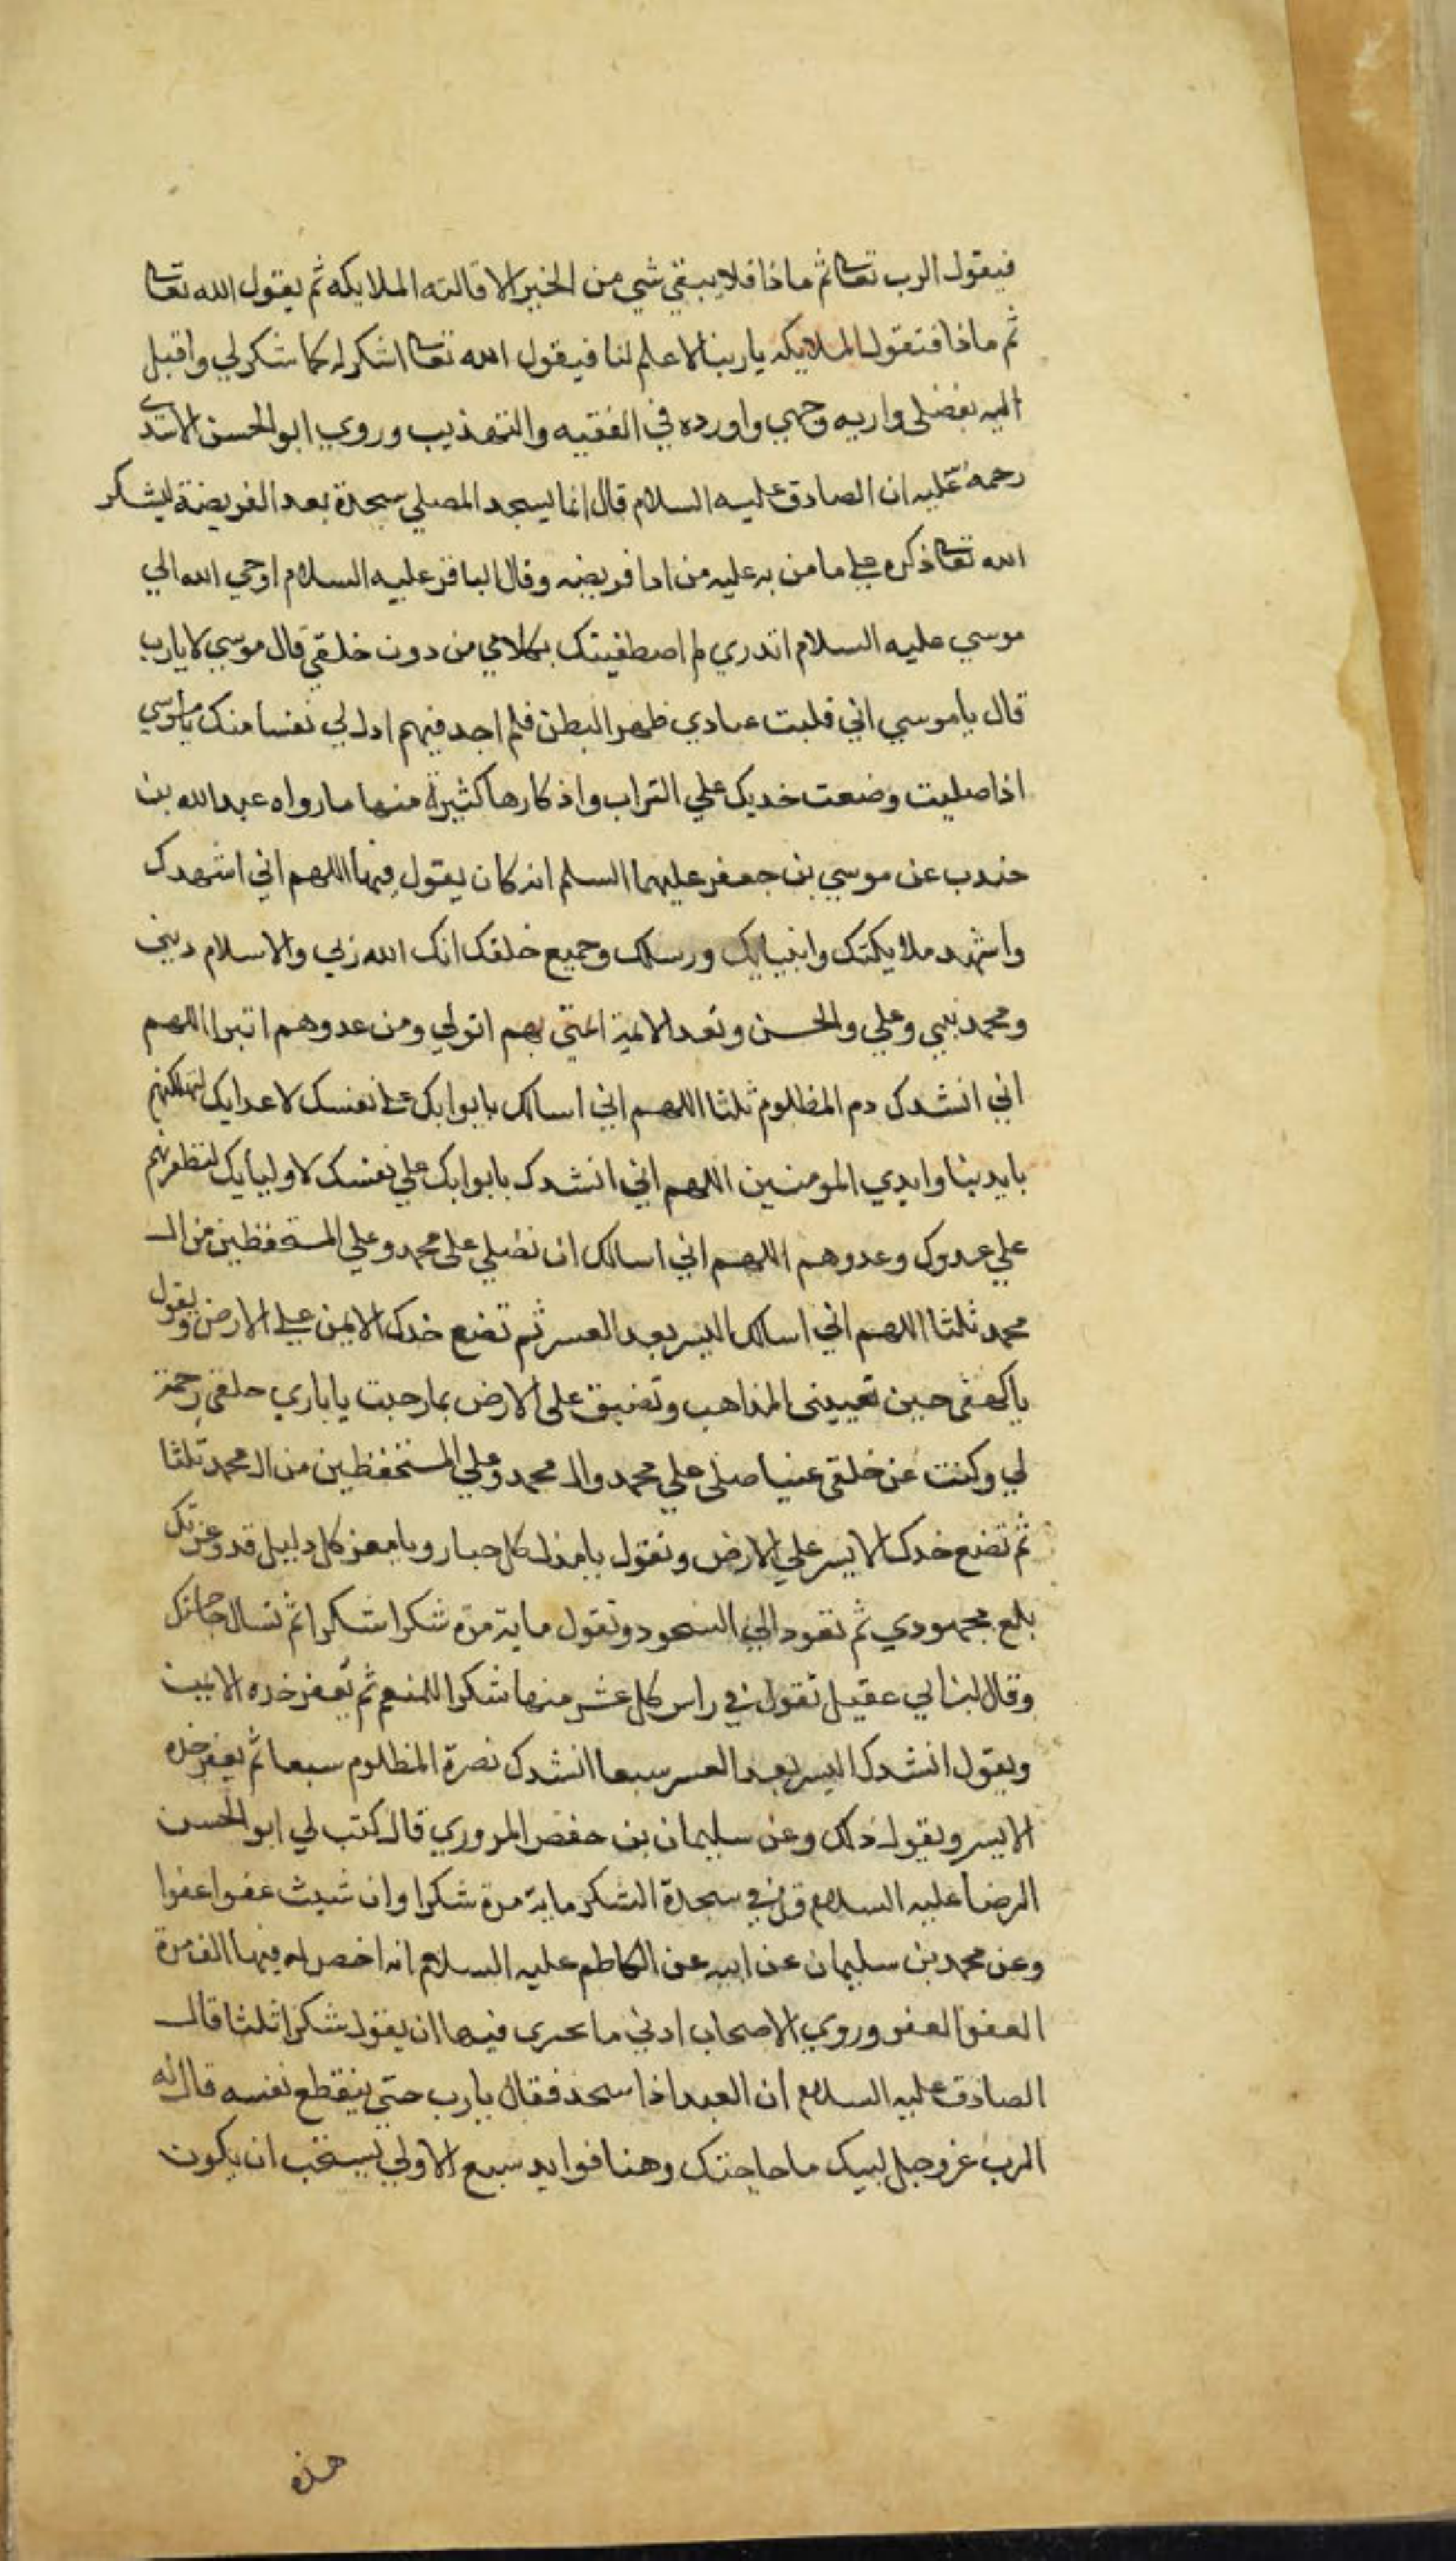 فيقول الرب تعالى ثم ماذا فلا يبقي شي من الخير الا قالته الملايكه ثم يقول الله تعالى
ثم ماذا فتقول الملايكه يا ربنا لا علم لنا فيقول الله تعالى اشكر له كما شكر لي واقبل
اليه بفضلي واريه وجهي واورده في الفقيه والتهذيب وروي ابو الحسن الاسدي
رحمة عليه ان الصادق عليه السلام قال انما يسجد المصلي سجدة بعد الفريضة ليشكر
الله تعالى ذكره علي ما من به عليه من ادا فريضه وقال الباقر عليه السلام اوحي الله الي
موسي عليه السلام اتدري لم اصطفيتك بكلامي من دون خلقي قال موسي لا يا رب
قال يا موسي اني قلبت عبادي ظهر البطن فلم اجد فيهم اذل لي نفسا منك يا موسي
اذا صليت وضعت خديك علي التراب واذكارها كثيرة منها ما رواه عبد الله بن
جندب عن موسي بن جعفر عليهما السلم انه كان يقول فيها اللهم اني اشهدك
واشهد ملايكتك وانبيايك ورسلك وجميع خلقك انك الله ربي والاسلام ديني
ومحمد نبيي وعلي والحسن وتعد الايمة ائمتي بهم اتولي ومن عدوهم اتبرا اللهم
اني انشدك دم المظلوم ثلثا اللهم اني اسالك بايوايك علي نفسك لاعدايك لتهلكنهم
بايدينا وايدي المومنين اللهم اني انشدك بايوايك علي نفسك لاوليايك لتظفرنهم
علي عدوك وعدوهم اللهم اني اسالك ان تصلي علي محمد وعلي المستحفظين من ال
محمد ثلثا اللهم اني اسالك اليسر بعد العسر ثم تضع خدك الايمن علي الارض ويقول
يا كهفي حين تعييني المذاهب وتضيق علي الارض بما رحبت يا باري خلقي رحمة
لي وكنت عن خلقي غنيا صلي علي محمد وال محمد وعلي المستحفظين من ال محمد ثلثا
ثم تضع خدك الايسر علي الارض وتقول يا مذل كل جبار ويا معز كل دليل قد وعزتك
بلغ مجهودي ثم تعود الي السجود وتقول ماية مرة شكرا شكرا ثم تسال حاجتك
وقال ابن ابي عقيل تقول في راس كل عشر منها شكرا للمنعم ثم يعفر خده الايمن
ويقول انشدك اليسر بعد العسر سبعا انشدك نصرة المظلوم سبعا ثم يعفر خده
الايسر ويقول ذلك وعن سليمان بن حفص المروري قال كتب لي ابو الحسن
الرضا عليه السلام قل في سجدة الشكر ماية مرة شكرا وان شيت عفوا عفوا
وعن محمد بن سليمان عن ابيه عن الكاظم عليه السلام انه احصي له فيها الف مرة
العفو العفو وروي الاصحاب ادني ما يجزي فيها ان يقول شكرا ثلثا قال
الصادق عليه السلام ان العبد اذا سجد فقال يا رب حتي ينقطع نفسه قال له
الرب عز وجل لبيك ما حاجتك وهنا فوايد سبع الاولي يستحب ان يكون
هذه